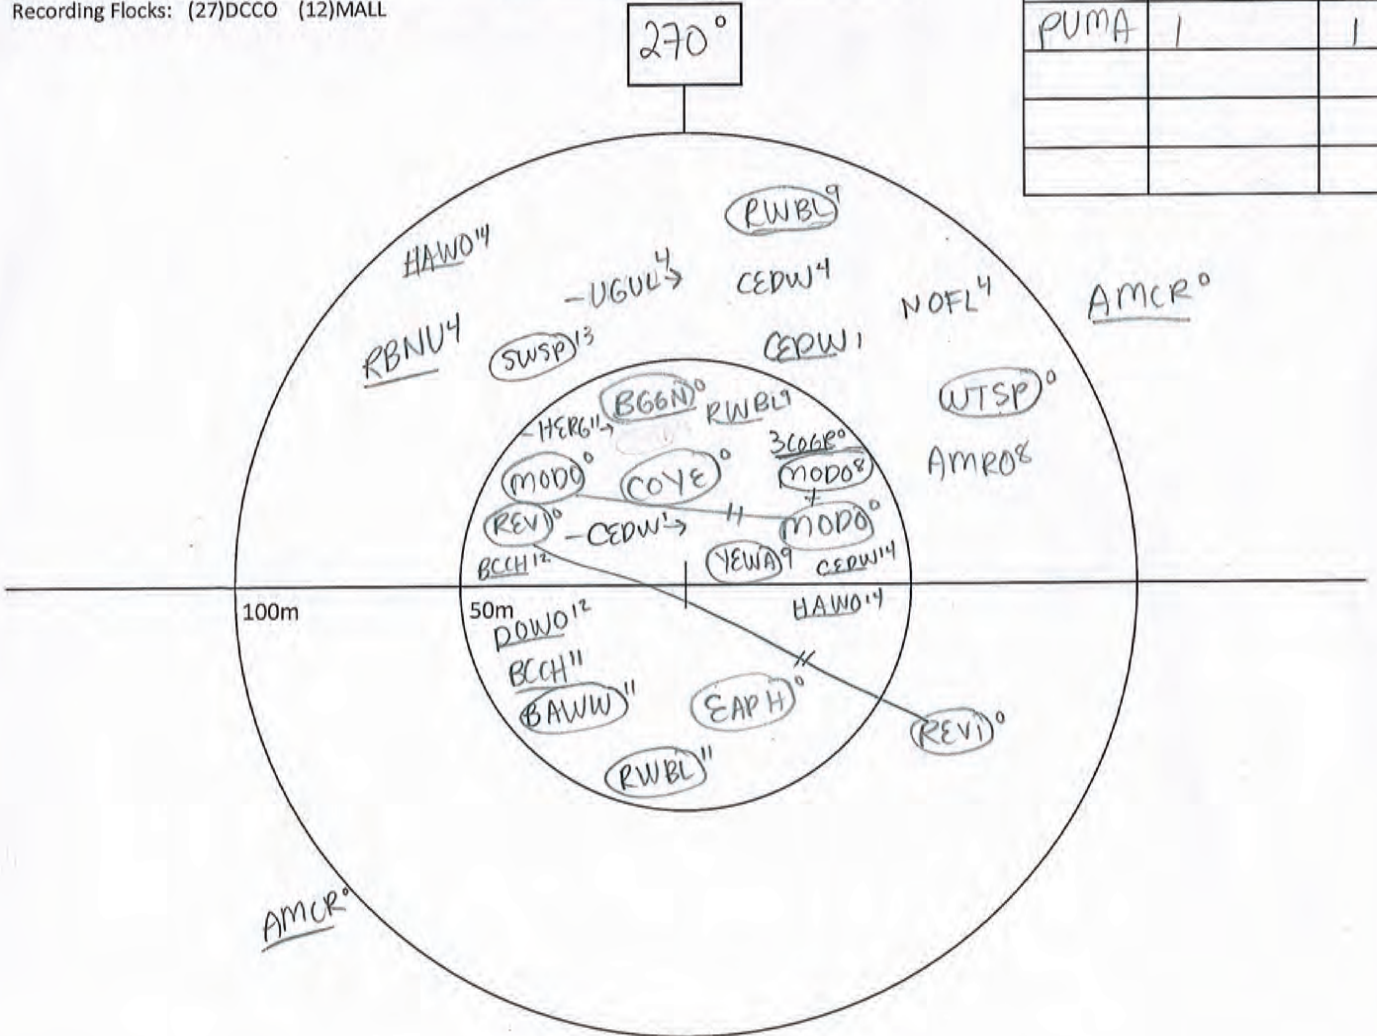 Recording Flocks: (27)DCCO (12)MALL
270°
PUMA 1 1
RWBL 9
HAWO 14
-UGUL 4→
CEDW 4
NOFL 4
AMCR 0
RBNU 4
SWSP 13
CEDW 1
BGGN 0
RWBL 9
WTSP 0
-HERG 11→
3COGR 0
MODO 0
COYE 0
MODO 8
AMRO 8
+
REVI 0
-CEDW 1→
//
MODO 0
BCCH 12
YEWA 9
CEDW 14
100m
50m
HAWO 14
DOWO 12
BCCH 11
//
BAWW 11
EAPH 0
REVI 0
RWBL 11
AMCR 0